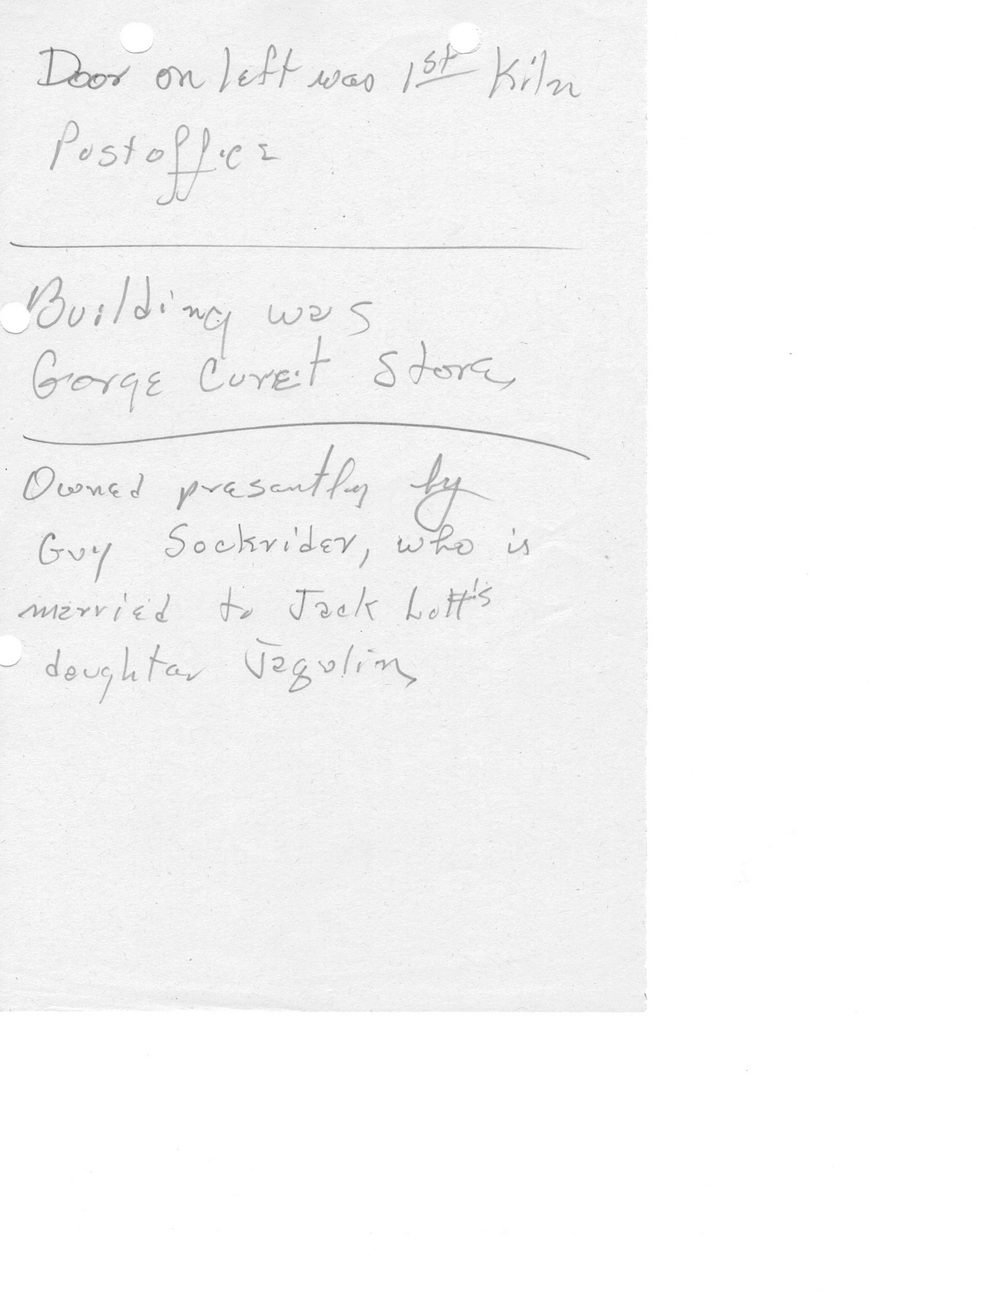 Door on left was 1st Kiln
Postoffice
Building was
Gorge Curet Store,
Owned presantly by
Guy Sockrider, who is
married to Jack Lott's
daughter Jaqulin,